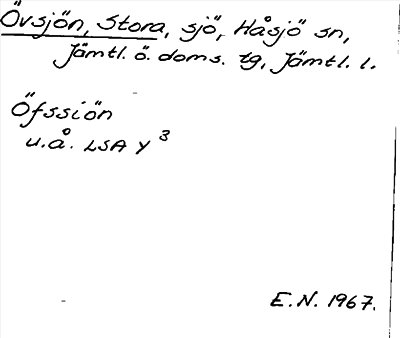 Övsjön, Stora, sjö, Håsjö sn,
Jämtl. ö. doms. tg, Jämtl. l.
Öfssiön
u.å. LSA Y 3
E.N. 1967.